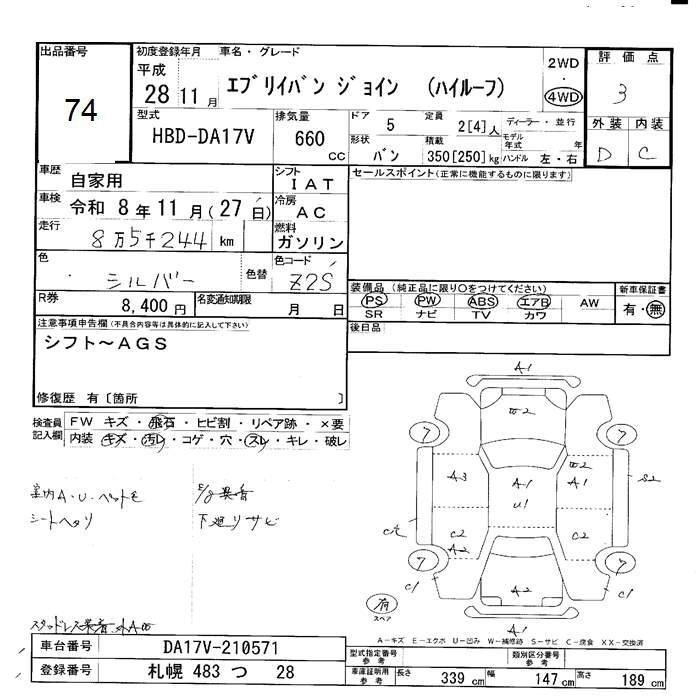 出品番号
74
初度登録年月
平成
28 11 月
車名・グレード
エブリイバン ジョイン (ハイルーフ)
2WD
・
4WD
評価点
3
外装 内装
D C
型式
HBD-DA17V
排気量
660
CC
ドア
5
定員
2[4]人
ディーラー・並行
モデル年式 年
形状
バン
積載
350[250]kg
ハンドル 左・右
車歴
自家用
シフト
IAT
セールスポイント(正常に機能するものに限ります)
車検
令和 8年 11月(27日)
冷房
AC
走行
8万5千244 km
燃料
ガソリン
色
シルバー
色替
色コード
Z2S
装備品(純正品に限り〇をつけてください)
PS PW ABS エアB AW
SR ナビ TV カワ
新車保証書
有・無
R券
8,400円
名変通知期限
月 日
後日品
注意事項申告欄(不具合内容等は具体的に記入して下さい)
シフト~AGS
修復歴 有〔箇所 〕
検査員記入欄
FW キズ・飛石・ヒビ割・リペア跡・×要
内装 キズ・汚レ・コゲ・穴・スレ・キレ・破レ
室内A・U・
シートヘタリ
E/g異音
下廻りサビ
A1
W2
7
7
A3
A1
U1
W2
A1
S2
C2
A2
C2
7
7
C1
A2
C1
A1
有
スペア
A-キズ E-エクボ U-凹み W-補修跡 S-サビ C-腐食 XX-交換済
車台番号
DA17V-210571
登録番号
札幌 483 つ 28
型式指定番号
参考
類別区分番号
参考
車庫証明用
参考
長さ 339 cm
幅 147 cm
高さ 189 cm